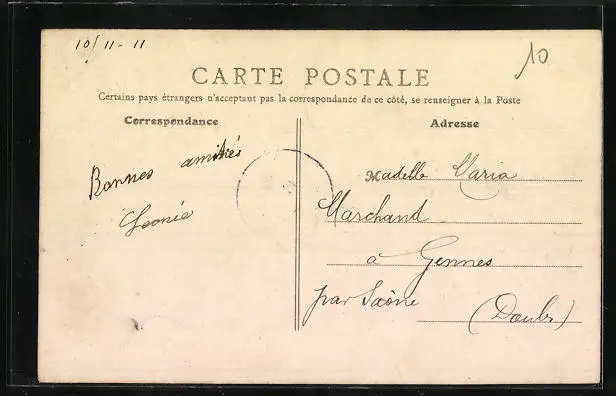 10/11-11
10
CARTE POSTALE
Certains pays étrangers n'acceptant pas la correspondance de ce côté, se renseigner à la Poste
Correspondance
Adresse
Bonnes amitiés
Léonie
Madelle Maria
Marchand
à Gennes
par Saône
(Doubs)